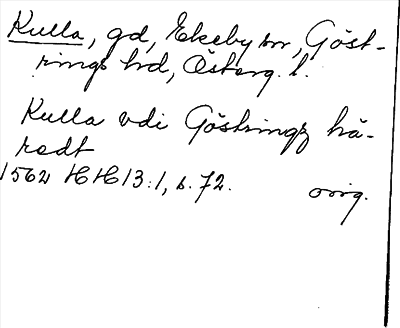 Kulla, gd, Ekeby sn, Göst-
rings hd, Österg. l.
Kulla vdi Göstringz hä-
redt
1562 HH 13:1, s. 72. orig.